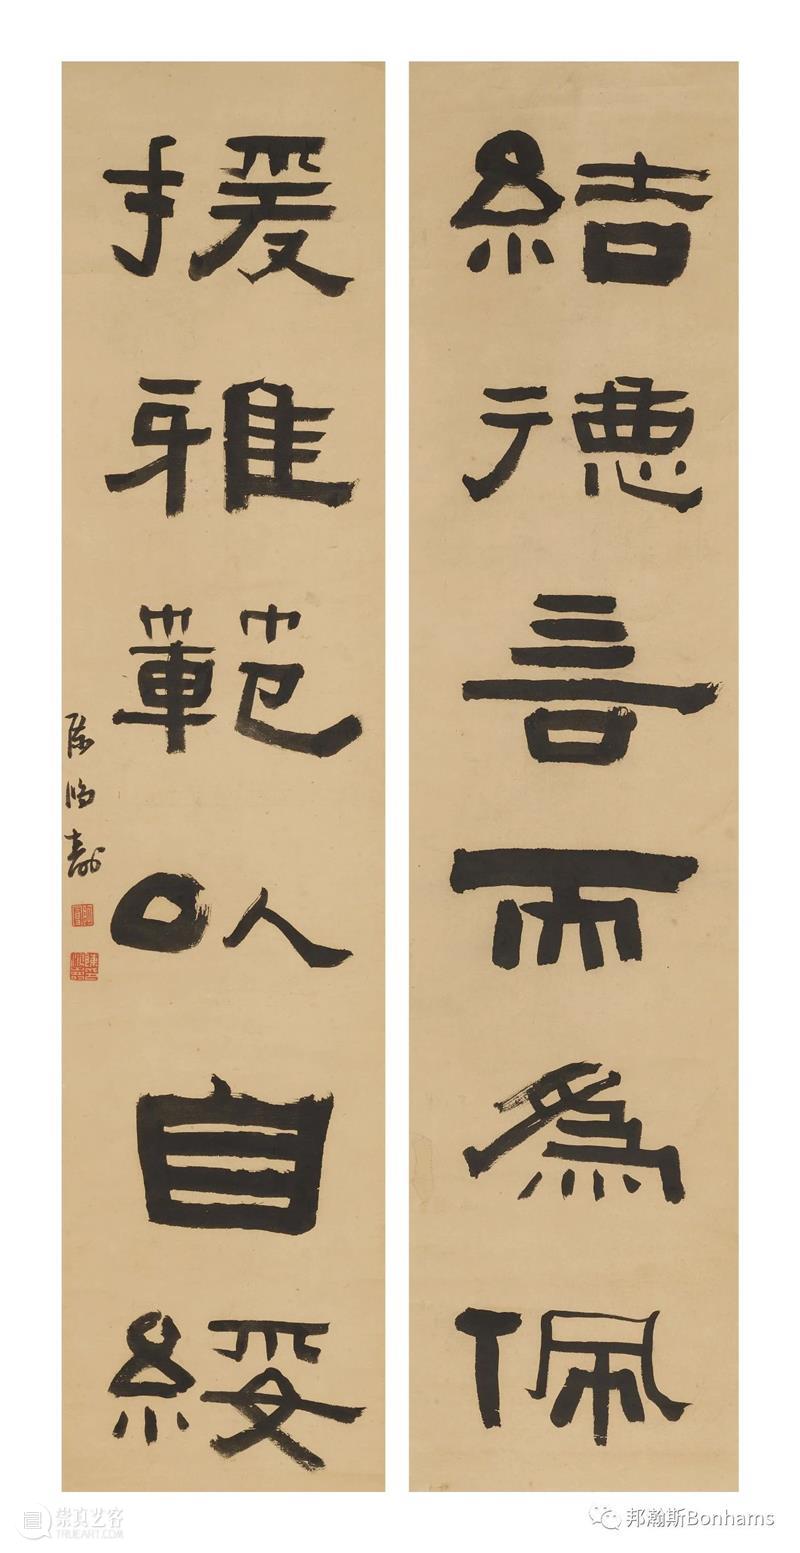 結德言而為佩
援雅範以自綏
陈鴻壽
崇真艺客
TRUEART.COM
邦瀚斯Bonhams